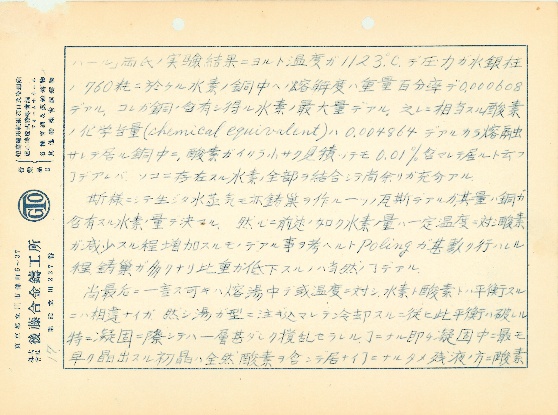 バール」両氏ノ実験結果ニヨルト温度ガ1123°C.デ圧力ガ水銀柱
ノ760粍ニ於ケル水素ノ銅中ヘノ熔解度ハ重量百分率デ0.000608
デアル、コレガ銅ノ含有シ得ル水素ノ最大量デアル、之レニ相当スル酸素
ノ化学当量(chemical equivalent)ハ0.004864デアルカラ熔融
サレテ居ル銅中ニ、酸素ガイクラ小サク見積ッテモ0.01%含マレテ居ルト云フ
コトデアレバ、ソコニ存在スル水素ノ全部ヲ結合シテ尚余リガ充分アル
斯様ニシテ生ジタ水蒸気モ亦鋳巣ヲ作ル一ツノ瓦斯デアルガ其量ハ銅ガ
含有スル水素ノ量デ決マル、然シニ前述ノ如ク水素ノ量ハ一定温度ニ対シ酸素
ガ減少スル程増加スルモノデアル事ヲ考ヘルトPolingガ甚敷ク行ハレル
程鋳巣ガ多クナリ比重ガ低下スルノハ当然ノコトデアル
尚最后ニ一言ス可キハ熔湯中デ或温度ニ対シ、水素ト酸素トハ平衡スル
ニハ相違ナイガ然シ湯ガ型ニ注ギ込マレテ冷却スルニ従ヒ此平衡ハ破レル
特ニ凝固ニ際シテハ一層甚ダシク撹乱セラレルコトニナル即チ凝固中ニ最モ
早ク晶出スル初晶ハ全然酸素ヲ含ンデ居ナイコトニナルタメ残液ノ方ニ酸素
GTO
株式会社
後藤合金鋳工所
17